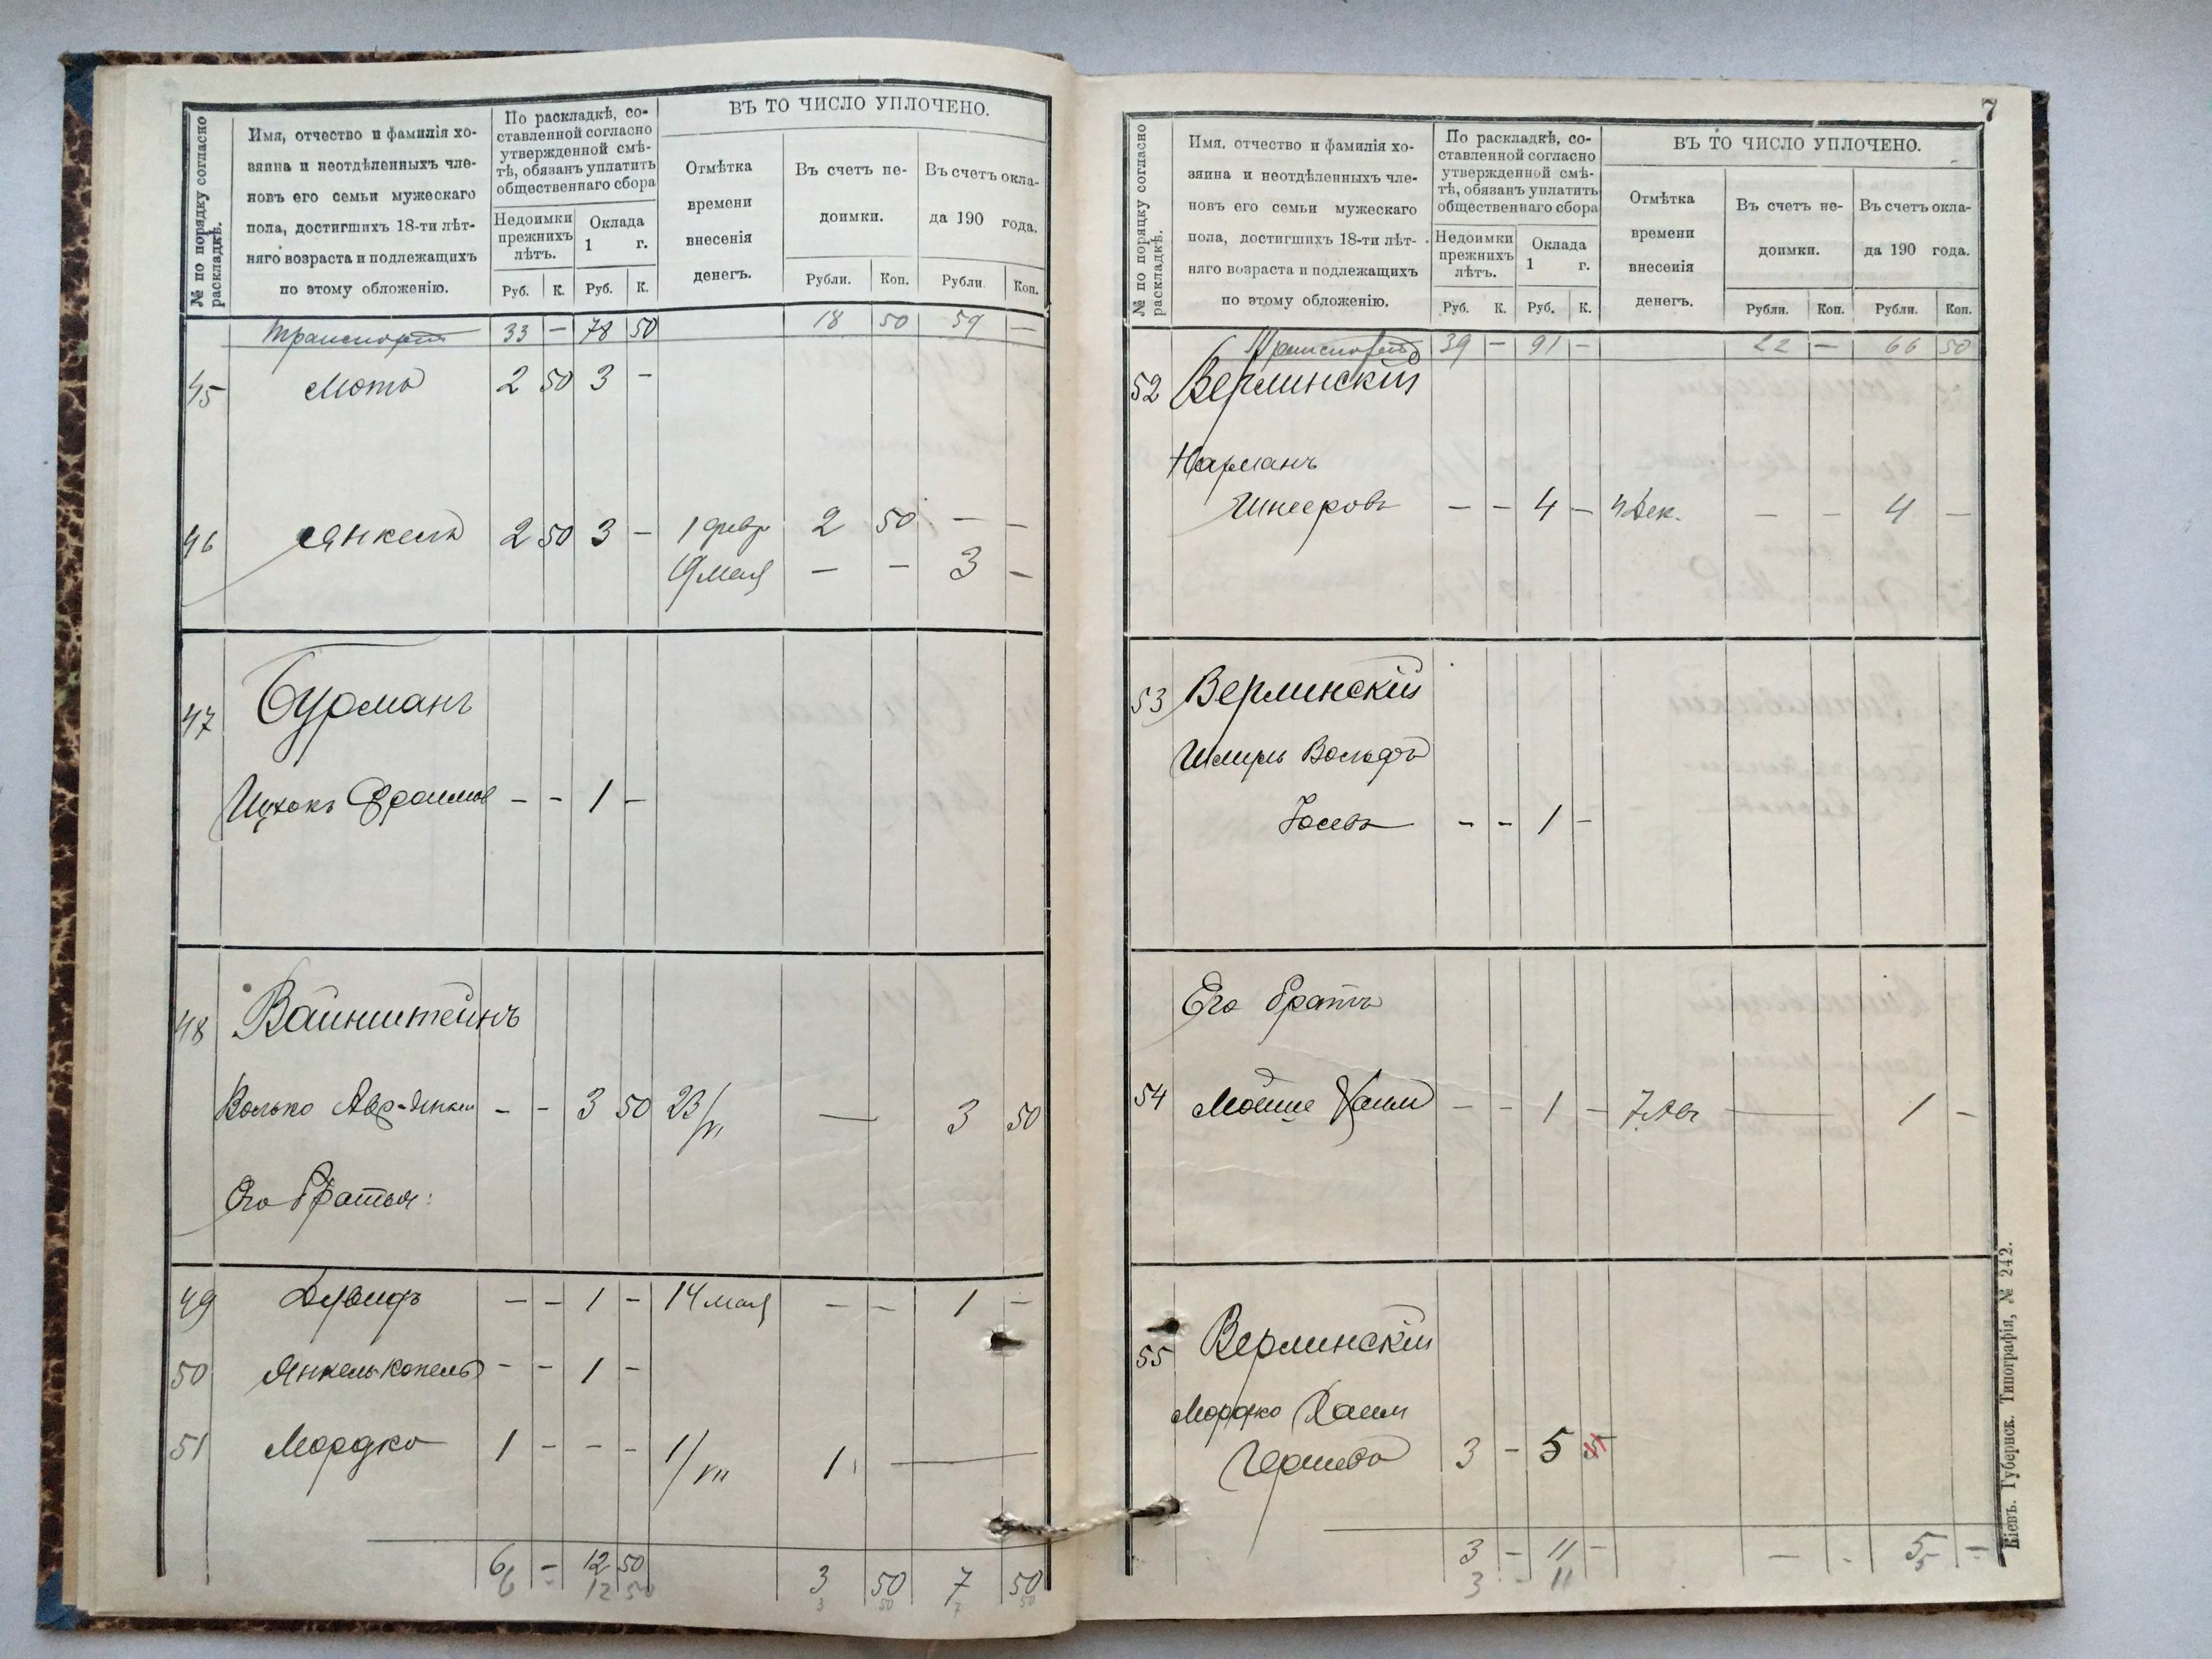 № по порядку согласно раскладкѣ.
Имя, отчество и фамилія хо-
зяина и неотдѣленныхъ чле-
новъ его семьи мужескаго
пола, достигшихъ 18-ти лѣт-
няго возраста и подлежащихъ
по этому обложенію.
По раскладкѣ, со-
ставленной согласно
утвержденной смѣ-
тѣ, обязанъ уплатить
общественнаго сбора
Недоимки прежнихъ лѣтъ.
Оклада 1 г.
Руб. К. Руб. К.
ВЪ ТО ЧИСЛО УПЛОЧЕНО.
Отмѣтка времени внесенія денегъ.
Въ счетъ не-
доимки.
Въ счетъ окла-
да 190 года.
Рубли. Коп. Рубли Коп.
Транспортъ 33 — 78 50 18 50 59 —
45 Мота 2 50 3 —
46 Янкель 2 50 3 — 1 февр 2 50 — —
19 мая — — 3 —
47 Бурманъ
Ицхокъ Фраимов — — 1 —
48 Вайнштейнъ
Волько Авр-Янкел — — 3 50 23/VI — 3 50
Его братья:
49 Дувидъ — — 1 — 14 мая — — 1 —
50 Янкель Копель — — 1 —
51 Мордко 1 — — — 1/VII 1 —
6 — 12 50 3 50 7 50
6 - 12 50 3 50 7 50
7
№ по поряцку согласно раскладкѣ.
Имя, отчество и фамилія хо-
зяина и неотдѣленныхъ чле-
новъ его семьи мужескаго
пола, достигшихъ 18-ти лѣт-
няго возраста и подлежащихъ
по этому обложенію.
По раскладкѣ, со-
ставленной согласно
утвержденной смѣ-
тѣ, обязанъ уплатить
общественнаго сбора
Недоимки прежнихъ лѣтъ.
Оклада 1 г.
Руб. К. Руб. К.
ВЪ ТО ЧИСЛО УПЛОЧЕНО.
Отмѣтка времени внесенія денегъ.
Въ счетъ не-
доимки.
Въ счетъ окла-
да 190 года.
Рубли. Коп. Рубли. Коп.
Транспортъ 39 — 91 — 22 — 66 50
52 Верлинскій
Нарманъ
— — 4 — 4 Дек. — — 4 —
53 Верлинскій
Шмиръ Вольфъ
Іосевъ — — 1 —
Его братъ
54 Мойше Хаим — — 1 — — 1 —
55 Верлинскій
Мордко Хаим
Гершево 3 — 5
3 — 11 — — - 5 —
3 - 11 5
Кіевъ. Губернск. Типографія, № 242.